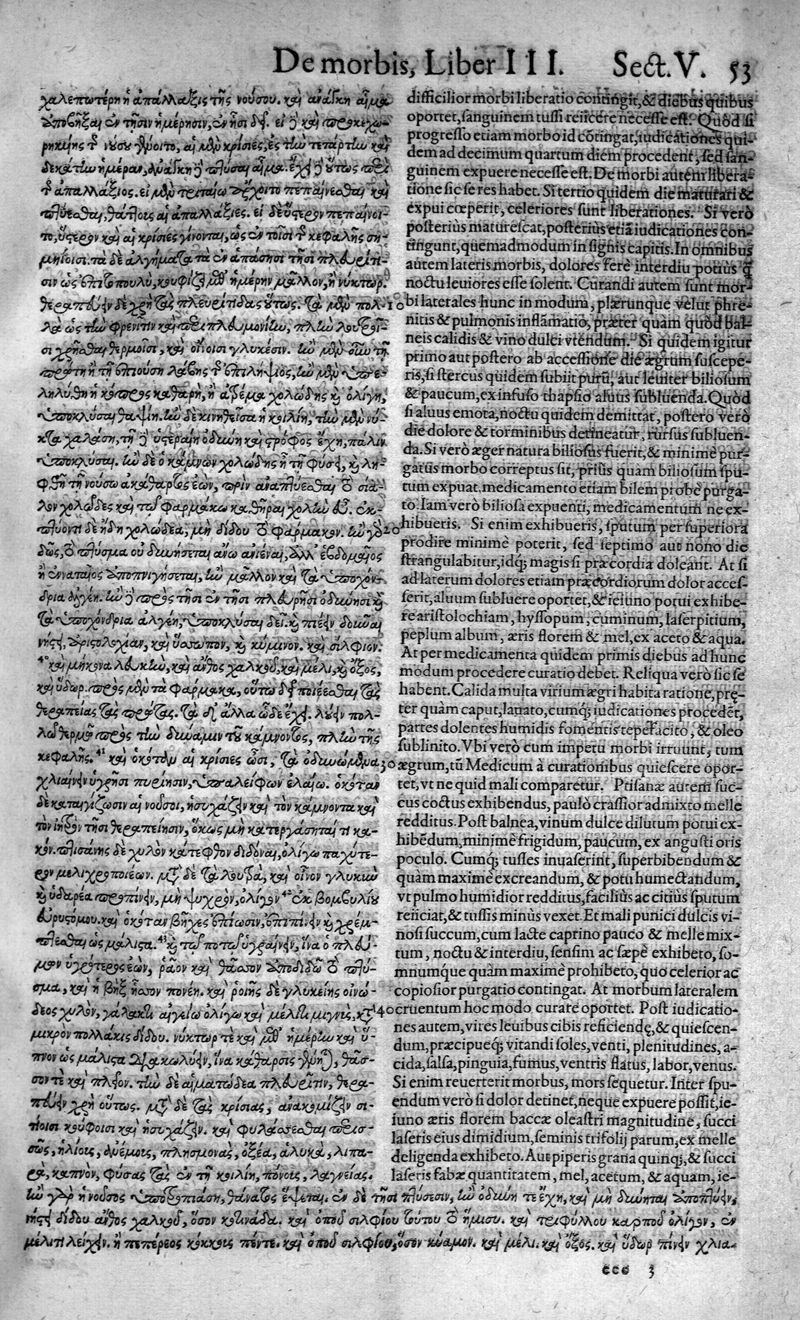 De morbis, Liber III. Sect. V. 53
χαλεπωτέρη ἡ ἀπάλλαξις τῆς νούσου. καὶ ἀνάγκη αἷμα
ἀποβῆξαι ἐν τῇσιν ἡμέρῃσιν, ἐν ᾗσι δεῖ. εἰ
γένοιτο, αἱ μὲν κρίσιες, ἐς τὴν τετάρτην καὶ
δεκάτην ἡμέραν, ἀνάγκη δὲ πτῦσαι αἷμα. ἔχει δὲ οὕτως περὶ
τῆς ἀπαλλάξιος. εἰ μὲν τριταίῳ ἄρχοιτο πεπαίνεσθαι καὶ
πτύεσθαι, θάττους αἱ ἀπαλλάξιες. εἰ δὲ ὕστερον πεπαίνοι-
το, ὕστερον καὶ αἱ κρίσιες γίνονται, ὡς ἐν τοῖσι τῆς κεφαλῆς ση-
μηίοισι. τὰ δὲ ἀλγήματα ἐν ἁπάσῃσι τῇσι πλευρίτι-
σιν ὡς ἐπιτοπουλὺ, κουφίζει μεθ' ἡμέρην μᾶλλον, ἢ νύκτωρ.
θεραπεύειν δὲ χρὴ τὰς πλευρίτιδας οὕτως. τὰ μὲν πολ- 10
λὰ ὡς τὴν φρενῖτιν καὶ περιπλευμονίην, πλὴν λουτροῖ-
σι χρῆσθαι θερμοῖσι, καὶ οἴνοισι γλυκέσιν. ἢν μὲν οὖν τῇ
πρώτῃ ἢ τῇ ἐπιούσῃ λάβῃς τῆς ἐπιλήψιος, ἢν μὲν διε-
ληλύθῃ ἡ κόπρος καθαρὴ, ἢ ἀτρέμα χολώδης καὶ ὀλίγη,
ὑποκλύσαι θαψίῃ. ἢν δὲ κινηθεῖσα ἡ κοιλίη, τὴν μὲν νύ-
κτα χαλάσῃ, τῇ δὲ ὑστεραίῃ ὀδύνη καὶ στρόφος ἔχῃ, πάλιν
ὑποκλύσαι. ἢν δὲ ὁ κάμνων χολώδης ᾖ τῇ φύσει, καὶ λη-
φθῇ τῇ νούσῳ ἀκάθαρτος ἐὼν, πρὶν ἀναπτύεσθαι τὸ σία-
λον χολῶδες καὶ τῷ φαρμάκῳ καθῆραι χολὴν εὖ. ἐκ-
πτύοντι δὲ ἤδη χολώδεα, μὴ δίδου τὸ φάρμακον. ἢν γὰρ 20
δῷς, τὸ πτύσμα οὐ δυνήσεται ἄνω ἀπιέναι, ἀλλ' ἑβδομαῖος
ἢ ἐνναταῖος ἀποπνιγήσεται, ἢν μᾶλλον καὶ τὰ ὑποχόν-
δρια ἀλγέῃ. ἢν δὲ πρὸς τῇσι ἐν τῇσι πλευρῇσι ὀδύνῃσι καὶ
τὰ ὑποχόνδρια ἀλγέῃ, ὑποκλῦσαι δεῖ. καὶ πιεῖν δοῦναι
νήστει, ἀριστολοχίαν, καὶ ὕσσωπον, καὶ κύμινον. καὶ σίλφιον.
40 καὶ μήκωνα λευκὴν, καὶ ἄνθος χαλκοῦ, καὶ μέλι, καὶ ὄξος,
καὶ ὕδωρ. πρὸς μὲν τὰ φάρμακα, οὕτω δεῖ ποιέεσθαι τὰς
θεραπείας τὰς πρώτας. τὰ δ' ἄλλα ὧδε ἔχει. λούειν πολ-
λῷ θερμῷ πρὸς τὴν δύναμιν τοῦ κάμνοντος, πλὴν τῆς
κεφαλῆς. 41 καὶ ὁκόταν αἱ κρίσιες ὦσι, τὰ ὀδυνώμενα 30
χλιαίνειν ὑγρῇσι πυρίῃσιν, ὑπαλείφων ἐλαίῳ. ὁκόταν
δὲ καταιγίζωσιν αἱ νοῦσοι, ἡσυχάζειν καὶ τὸν κάμνοντα καὶ
τὸν ἰητρὸν τῇσι θεραπείῃσιν, ὅκως μὴ κατεργάσηταί τι κα-
κόν. πτισάνης δὲ χυλὸν κάτεφθον διδόναι, ὀλίγῳ παχύτε-
ρον μελιχρὸν ποιέων. μετὰ δὲ τὰ λουτρὰ, καὶ οἶνον γλυκὺν
καὶ ὑδαρέα προπίνειν, μὴ ψυχρὸν, ὀλίγον 42 ἐκ βομβυλίου
εὐρυστόμου. καὶ ὁκόταν βῆχες ἐπίωσιν, ἐπιπίνειν καὶ χρέμ-
πτεσθαι ὡς μάλιστα. 43 καὶ τῷ ποτῷ ὑγραίνειν, ἵνα ὁ πλεύ-
μων ὑγρότερος ἐὼν, ῥᾷον καὶ θᾶσσον ἀποδιδῷ τὸ πτύ-
σμα, καὶ ἡ βὴξ ἧσσον πονέῃ. καὶ ῥοιῆς δὲ γλυκείης οἰνώ-
δεος χυλὸν, γάλακτι αἰγείῳ ὀλίγῳ καὶ μέλιτι μιγνὺς, κατὰ 40
μικρὸν πολλάκις δίδου. νύκτωρ τε καὶ μεθ' ἡμέρην καὶ ὕ-
πνον ὡς μάλιστα διακωλύειν, ἵνα κάθαρσις γένηται, θάσ-
σον τε καὶ πλείων. τὴν δὲ αἱματώδεα πλευρῖτιν, θερα-
πεύειν χρὴ οὕτως. μετὰ δὲ τὰς κρίσιας, ἀνακομίζειν σι-
τίοισι κούφοισι καὶ ἡσυχάζειν. καὶ φυλάσσεσθαι περισ-
σῶς, ἡλίους, ἀνέμους, πλησμονὰς, ὀξέα, ἁλυκὰ, λιπα-
ρὰ, καπνὸν, φύσας τὰς ἐν τῇ κοιλίῃ, πόνους, λαγνείας.
difficilior morbi liberatio contingit, & diebus quibus
oportet, sanguinem tussi reiicere necesse est. Quòd si
progresso etiam morbo id cõtingat, iudicationes qui-
dem ad decimum quartum diem procedent, sed san-
guinem expuere necesse est. De morbi autem libera-
tione sic se res habet. Si tertio quidem die maturari &
expui cœperit, celeriores sunt liberationes. Si verò
posterius maturescat, posterius etiã iudicationes con-
tingunt, quemadmodum in signis capitis. In omnibus
autem lateris morbis, dolores ferè interdiu potius q̃
noctu leuiores esse solent. Curandi autem sunt mor-
bi laterales hunc in modum, plærunque velut phre-
nitis & pulmonis inflãmatio, præter quàm quòd bal-
neis calidis & vino dulci vtendum. Si quidem igitur
primo aut postero ab accessione die ægrum suscepe-
ris, si stercus quidem subiit purũ, aut leuiter biliosum
& paucum, ex infuso thapsio aluus subluenda. Quòd
si aluus emota, noctu quidem demittat, postero verò
die dolore & torminibus detineatur, rursus subluen-
da. Si verò æger natura biliosus fuerit, & minimè pur-
gatus morbo correptus sit, prius quam biliosum spu-
tum expuat, medicamento etiam bilem probè purga-
to. Iam verò biliosa expuenti, medicamentum ne ex-
hibueris. Si enim exhibueris, sputum per superiora
prodire minimè poterit, sed septimo aut nono die
strangulabitur, idq; magis si præcordia doleant. At si
ad laterum dolores etiam præcordiorum dolor acces-
serit, aluum subluere oportet, & ieiuno potui exhibe-
re aristolochiam, hyssopum, cuminum, laserpitium,
peplum album, æris florem & mel, ex aceto & aqua.
At per medicamenta quidem primis diebus ad hunc
modum procedere curatio debet. Reliqua verò sic se
habent. Calida multa virium ægri habita ratione, præ-
ter quàm caput, lauato, cumq; iudicationes procedẽt,
partes dolentes humidis fomentis tepefacito, & oleo
sublinito. Vbi verò cum impetu morbi irruunt, tum
ægrum, tũ Medicum à curationibus quiescere opor-
tet, vt ne quid mali comparetur. Ptisanæ autem suc-
cus coctus exhibendus, paulò crassior admixto melle
redditus. Post balnea, vinum dulce dilutum potui ex-
hibẽdum, minimè frigidum, paucum, ex angusti oris
poculo. Cumq; tusses inuaserint, superbibendum &
quàm maximè excreandum, & potu humectandum,
vt pulmo humidior redditus, facilius ac citius sputum
reiiciat, & tussis minus vexet. Et mali punici dulcis vi-
nosi succum, cum lacte caprino pauco & melle mix-
tum, noctu & interdiu, sensim ac sæpè exhibeto, so-
mnumque quàm maximè prohibeto, quo celerior ac
copiosior purgatio contingat. At morbum lateralem
cruentum hoc modo curare oportet. Post iudicatio-
nes autem, vires leuibus cibis reficiendę, & quiescen-
dum, præcipueq; vitandi soles, venti, plenitudines, a-
cida, salsa, pinguia, fumus, ventris flatus, labor, venus.
Si enim reuerterit morbus, mors sequetur. Inter spu-
endum verò si dolor detinet, neque expuere possit, ie-
iuno æris florem baccæ oleastri magnitudine, succi
laseris eius dimidium, seminis trifolij parum, ex melle
deligenda exhibeto. Aut piperis grana quinq;, & succi
laseris fabæ quantitatem, mel, acetum, & aquam, ie-
ἢν γὰρ ἡ νοῦσος ὑποτροπιάσῃ, θάνατος ἕψεται. ἐν δὲ τῇσι πτύσεσιν, ἢν ὀδύνη τε ἔχῃ, καὶ μὴ δύνηται ἀποπτύειν,
νήστει δίδου ἄνθος χαλκοῦ, ὅσον κοτινάδα. καὶ ὀποῦ σιλφίου τούτου τὸ ἥμισυ. καὶ τριφύλλου καρποῦ ὀλίγον, ἐν
μέλιτι λείχειν. ἢ πεπέρεος κόκκοις πέντε. καὶ ὀποῦ σιλφίου, ὅσον κύαμον. καὶ μέλι. καὶ ὄξος. καὶ ὕδωρ πίνειν χλια-
eee 3